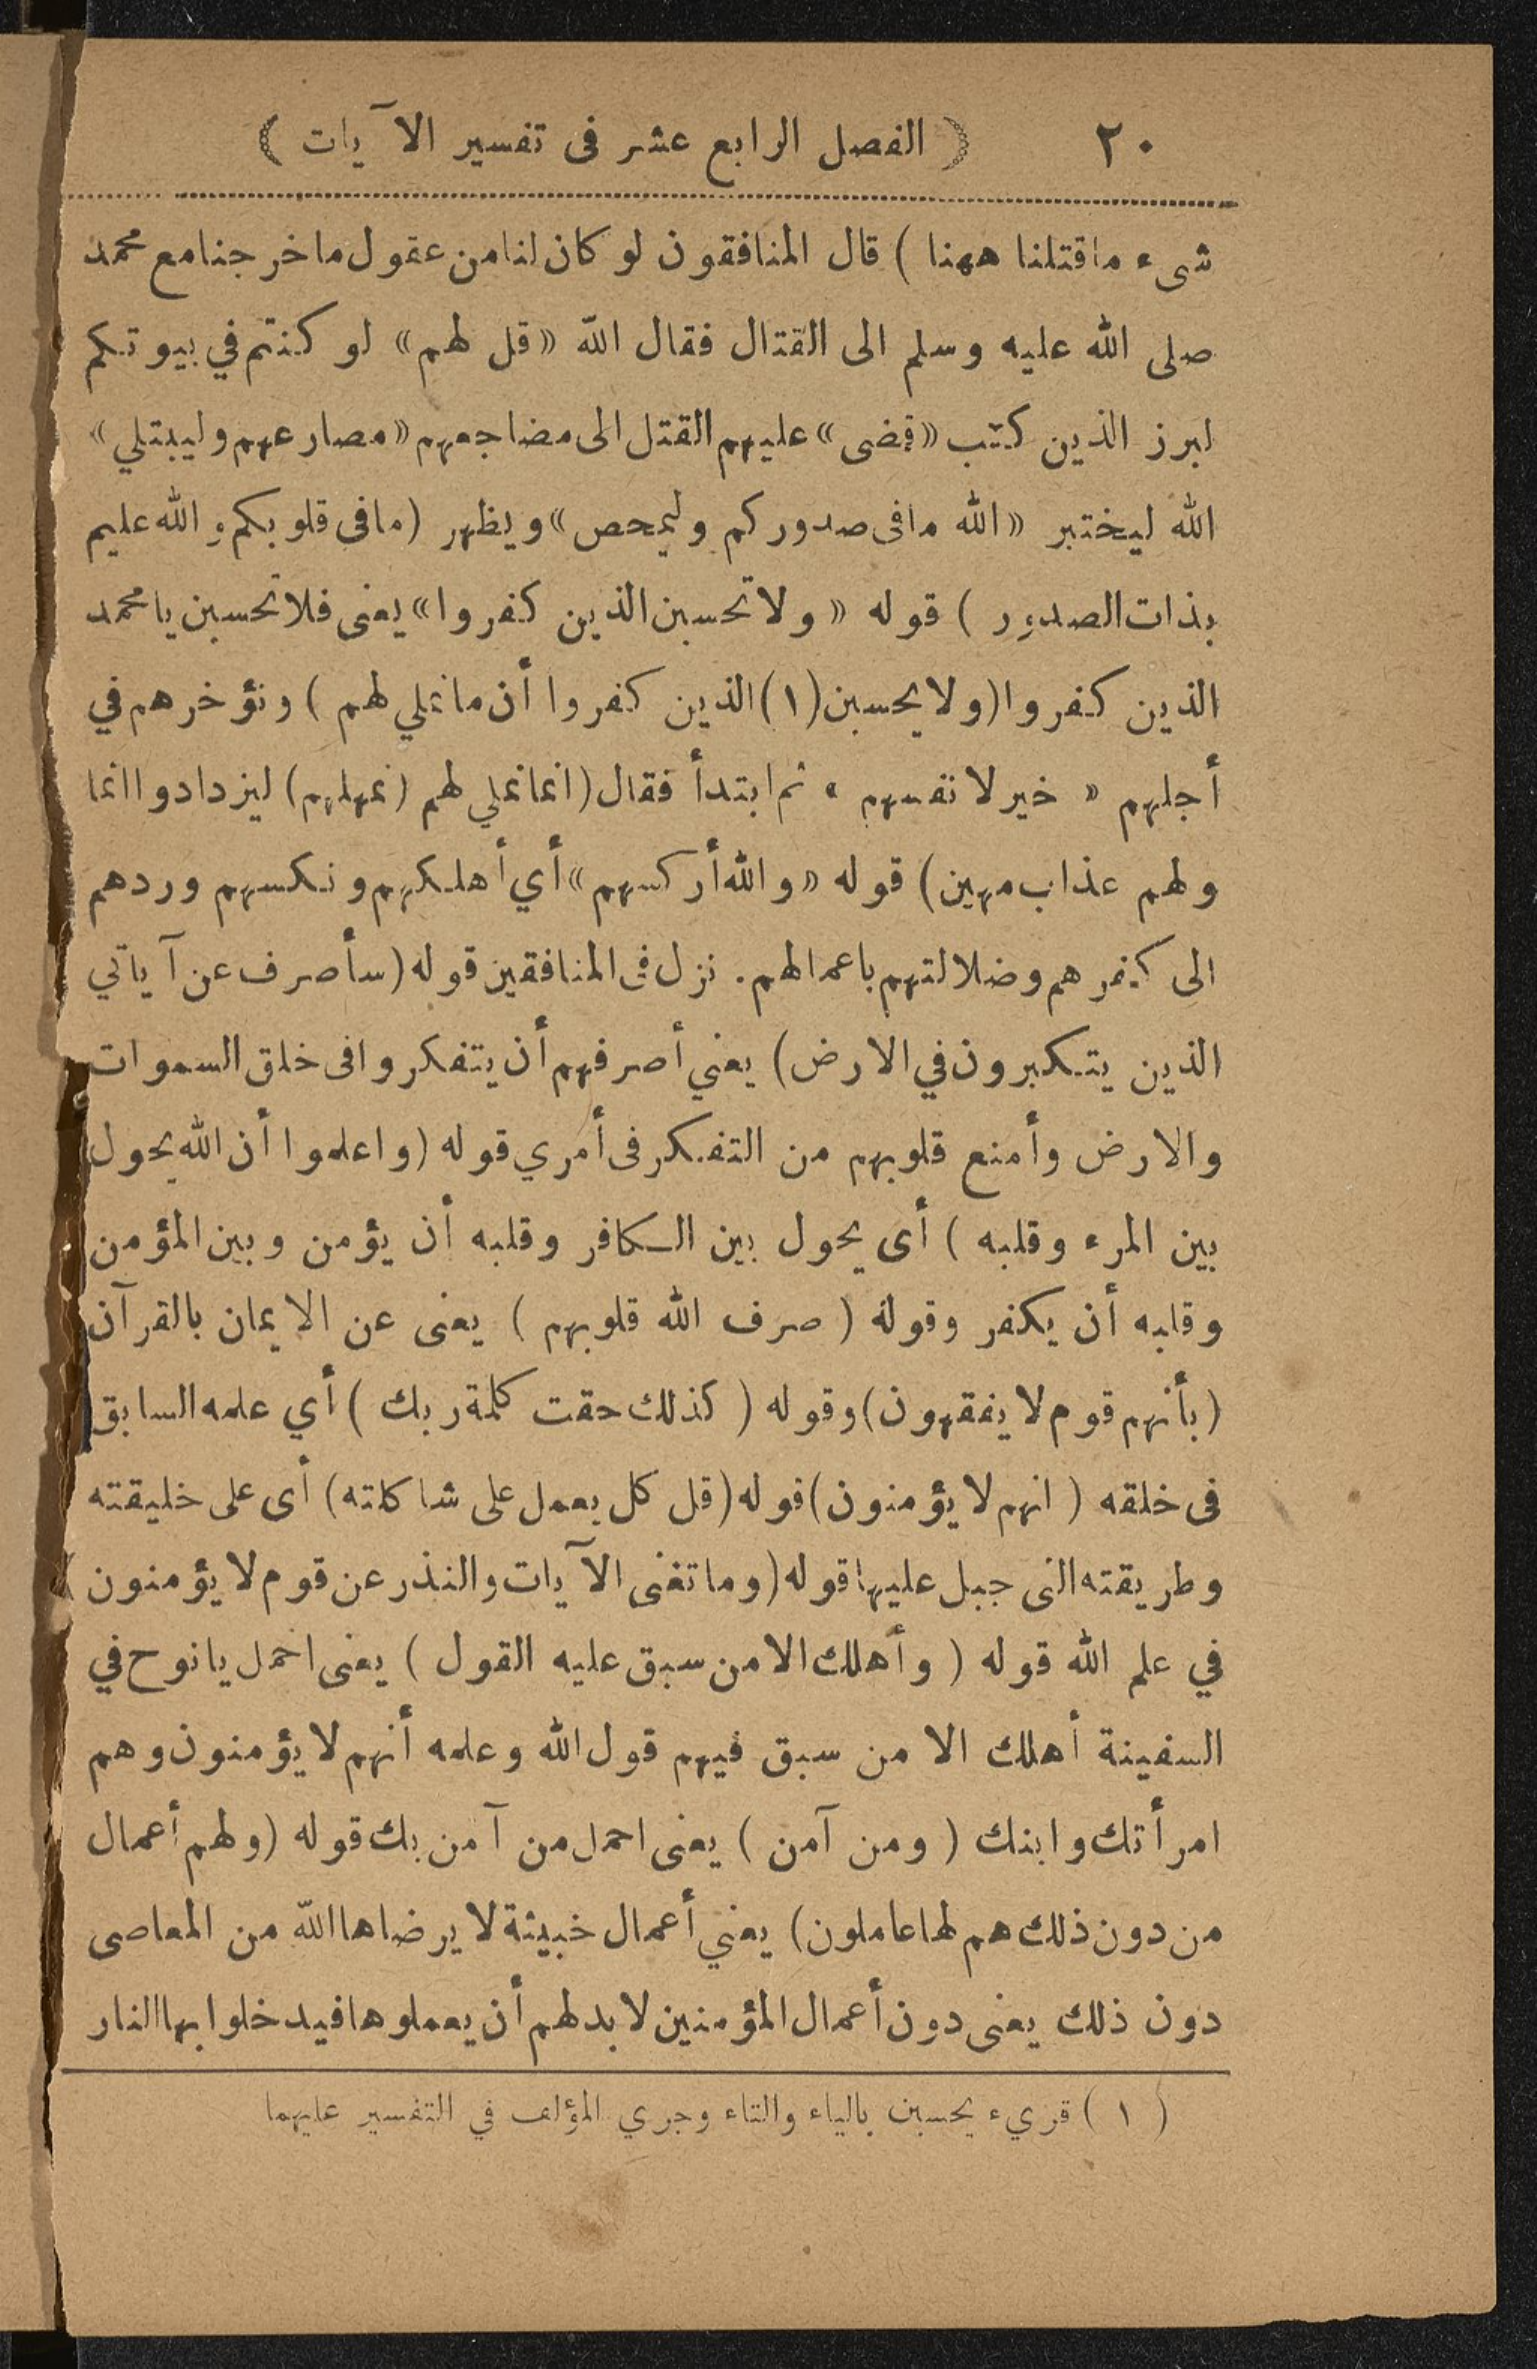 ٢٠ ( الفصل الرابع عشر فى تفسير الآيات )
شىء ماقتلنا ههنا ) قال المنافقون لو كان لنا من عقول ما خرجنا مع محمد
صلى الله عليه وسلم الى القتال فقال الله «قل لهم» لو كنتم في بيوتكم
لبرز الذين كتب «قضى» عليهم القتل الى مضاجعهم «مصارعهم وليبتلي»
الله ليختبر «الله مافى صدوركم وليمحص» ويظهر (مافى قلوبكم والله عليم
بذات الصدور ) قوله «ولا تحسبن الذين كفروا» يعنى فلا تحسبن يا محمد
الذين كفروا (ولا يحسبن (١) الذين كفروا أن ما نملي لهم ) ونؤخرهم في
أجلهم « خير لانفسهم » ثم ابتدأ فقال (انما نملي لهم (نمهلهم) ليزدادوا اثما
ولهم عذاب مهين) قوله «والله أركسهم» أي أهلكهم ونكسهم وردهم
الى كفرهم وضلالتهم باعمالهم. نزل فى المنافقين قوله (سأصرف عن آياتي
الذين يتكبرون في الارض) يعني أصرفهم أن يتفكروا فى خلق السموات
والارض وأمنع قلوبهم من التفكر فى أمري قوله (واعلموا أن الله يحول
بين المرء وقلبه ) أى يحول بين الكافر وقلبه أن يؤمن وبين المؤمن
وقلبه أن يكفر وقوله ( صرف الله قلوبهم ) يعنى عن الايمان بالقرآن
(بأنهم قوم لا يفقهون) وقوله ( كذلك حقت كلمة ربك ) أي علمه السابق
فى خلقه ( انهم لا يؤمنون) قوله (قل كل يعمل على شاكلته) أى على خليقته
وطريقته التى جبل عليها قوله (وما تغنى الآيات والنذر عن قوم لا يؤمنون )
في علم الله قوله ( وأهلك الا من سبق عليه القول ) يعنى احمل يا نوح في
السفينة أهلك الا من سبق فيهم قول الله وعلمه أنهم لا يؤمنون وهم
امرأتك وابنك ( ومن آمن ) يعنى احمل من آمن بك قوله (ولهم أعمال
من دون ذلك هم لها عاملون) يعني أعمال خبيثة لا يرضاها الله من المعاصى
دون ذلك يعنى دون أعمال المؤمنين لا بد لهم أن يعملوها فيدخلوا بها النار
( ١ ) قريء يحسبن بالياء والتاء وجري المؤلف في التفسير عليهما